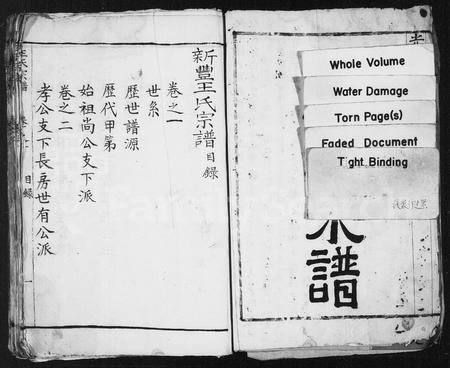 Whole Volume
Water Damage
Torn Page(s)
Faded Document
Tight Binding
宗譜
新豐王氏宗譜目錄
卷之一
世系
歷世譜源
歷代甲第
始祖尚公支下派
卷之二
孝公支下長房世有公派
王氏宗譜
目錄
一